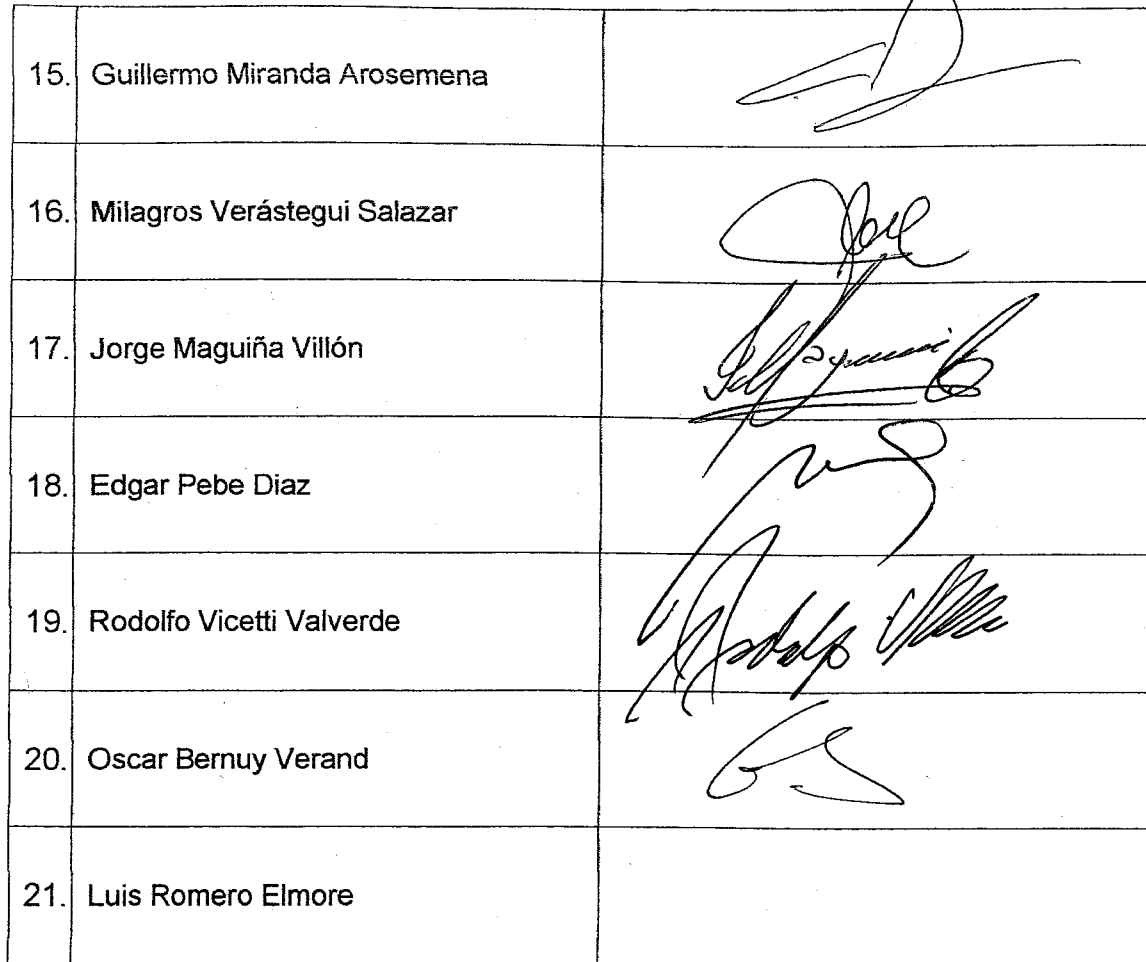 15. Guillermo Miranda Arosemena
16. Milagros Verástegui Salazar
17. Jorge Maguiña Villón
18. Edgar Pebe Diaz
19. Rodolfo Vicetti Valverde
Rodolfo
20. Oscar Bernuy Verand
21. Luis Romero Elmore